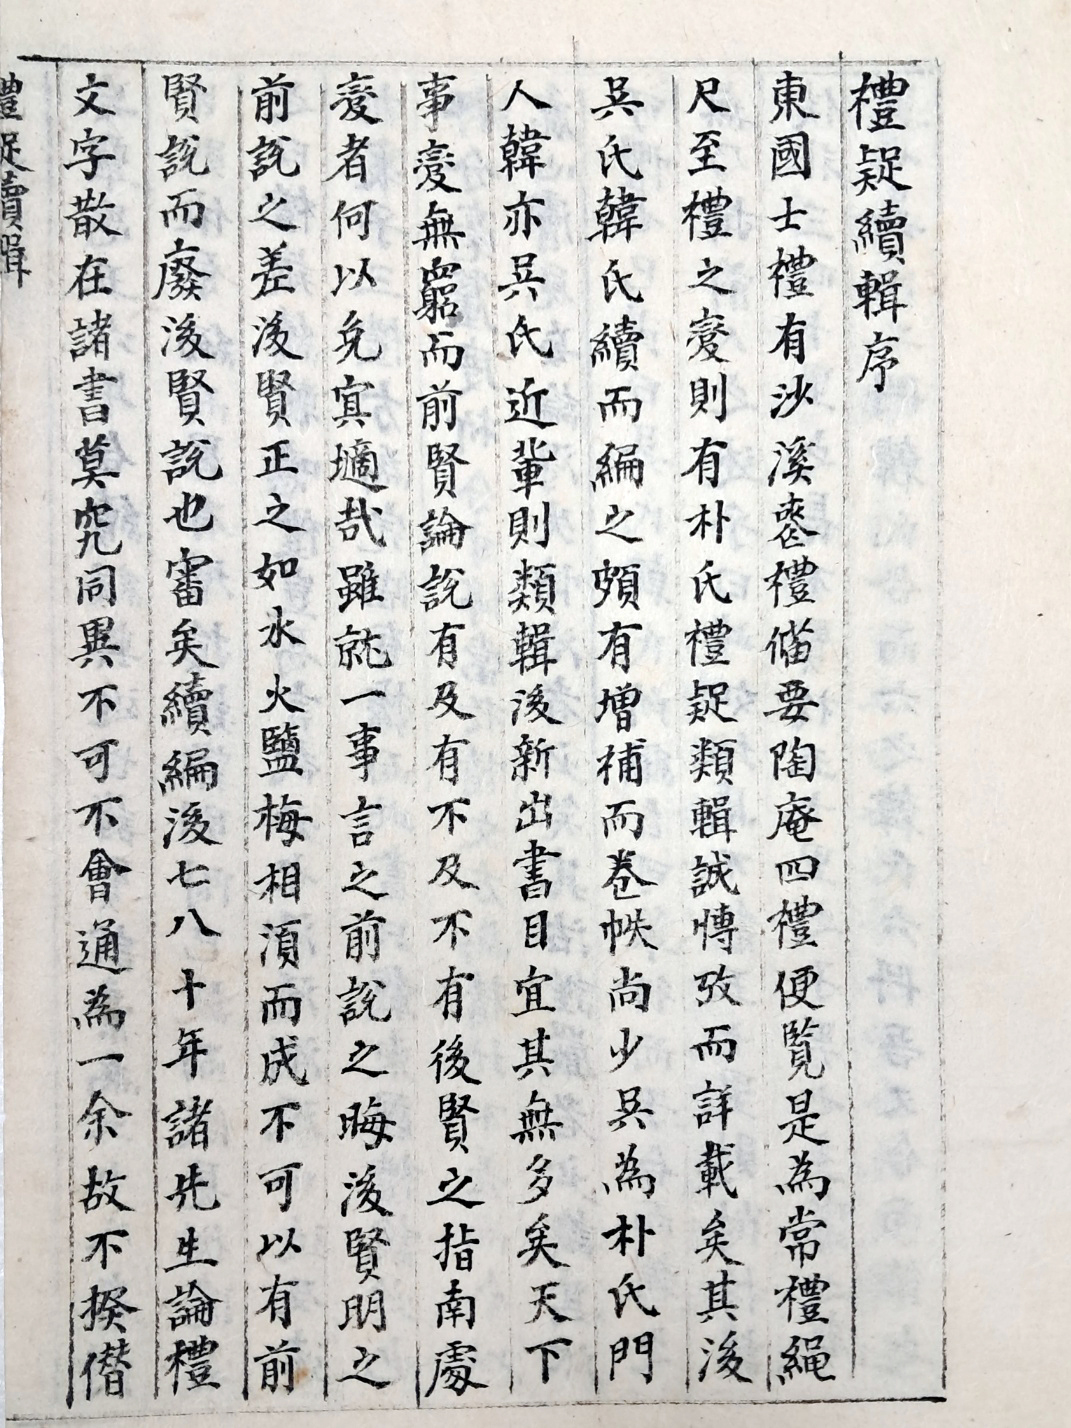 禮疑續輯序
東國士禮有沙溪喪禮備要陶庵四禮便覽是為常禮繩
尺至禮之變則有朴氏禮疑類輯誠博攷而詳載矣其後
吳氏韓氏續而編之頗有增補而卷帙尚少吳為朴氏門
人韓亦吳氏近輩則類輯後新出書目宜其無多矣天下
事變無窮而前賢論說有及有不及不有後賢之指南處
變者何以免冥擿哉雖就一事言之前說之晦後賢明之
前說之差後賢正之如水火鹽梅相須而成不可以有前
賢說而廢後賢說也審矣續編後七八十年諸先生論禮
文字散在諸書莫究同異不可不會通為一余故不揆僭
禮疑續輯